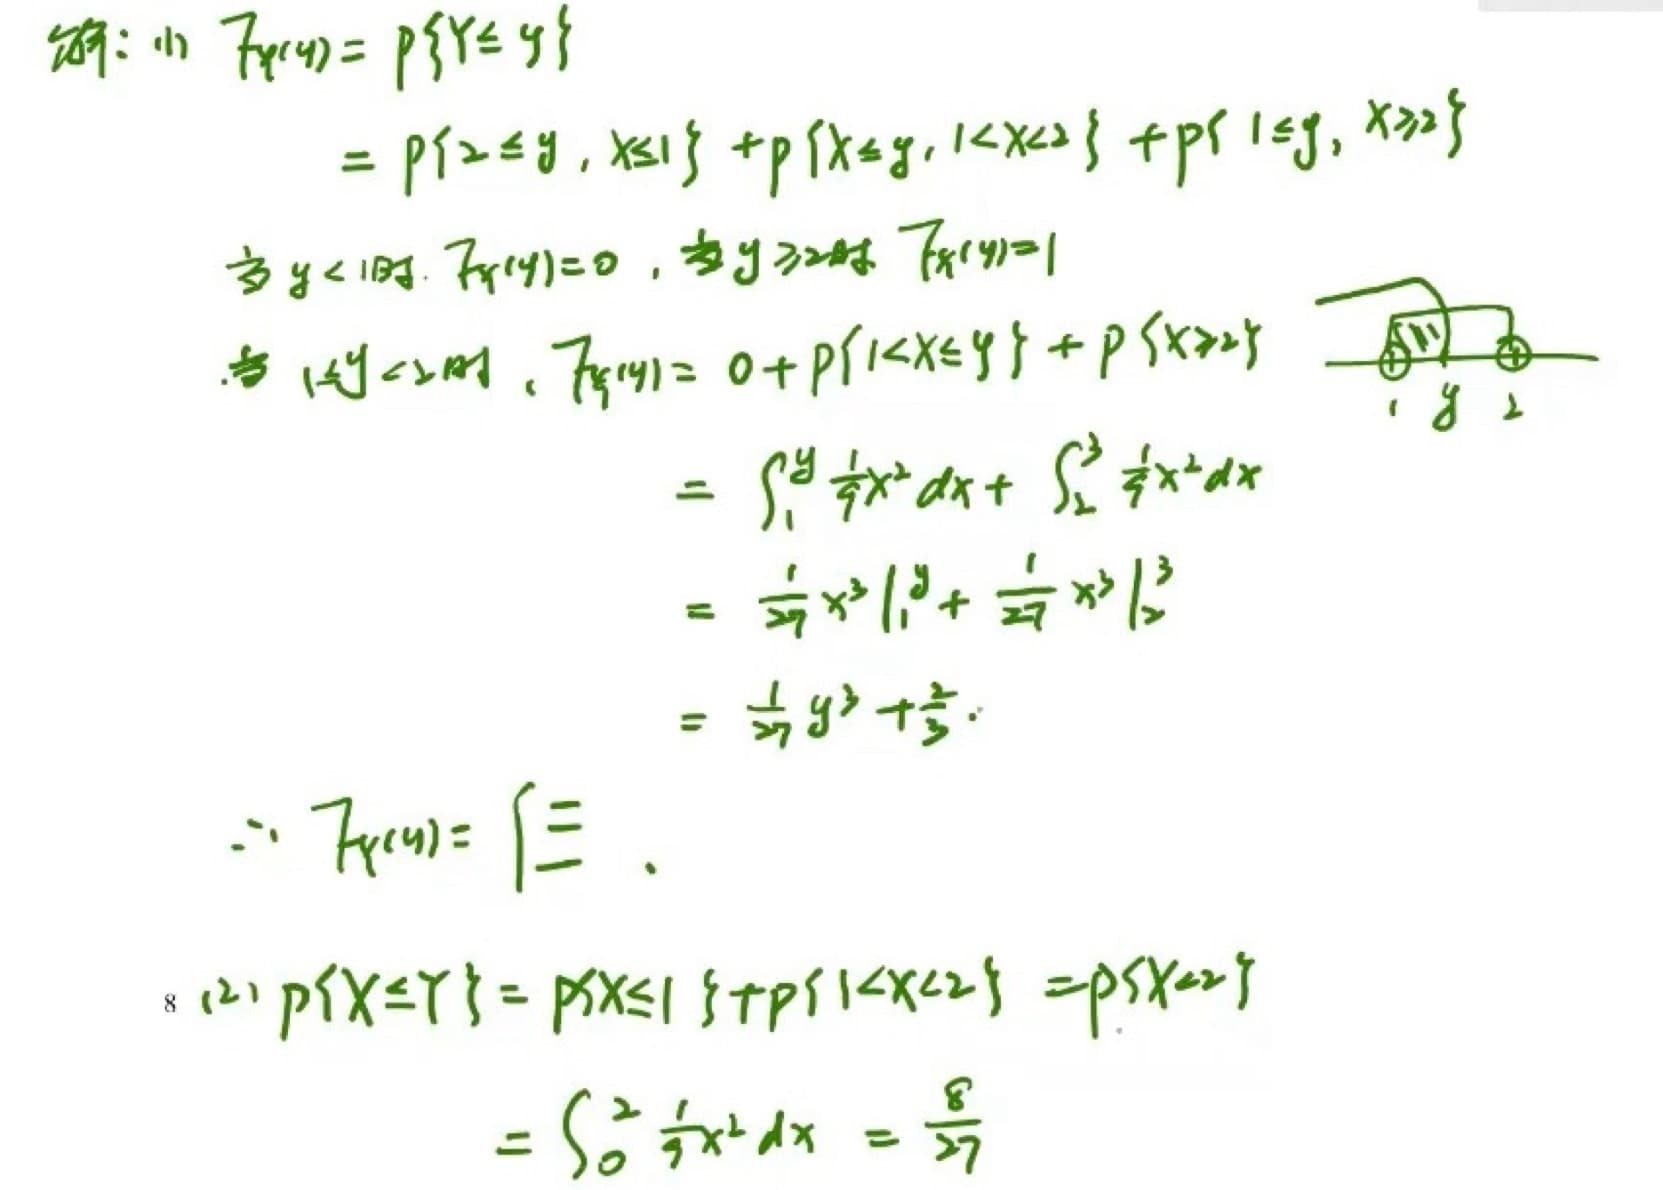 解: (1) F_Y(y) = P{Y ≤ y}
= P{2 ≤ y, X ≤ 1} + P{X ≤ y, 1 < X < 2} + P{1 ≤ y, X ≥ 2}
当 y < 1时. F_Y(y) = 0, 当 y ≥ 2时 F_Y(y) = 1
当 1 ≤ y < 2时, F_Y(y) = 0 + P{1 < X ≤ y} + P{X ≥ 2}
1 y 2
= ∫_1^y 1/9 x² dx + ∫_2^3 1/9 x² dx
= 1/27 x³ |_1^y + 1/27 x³ |_2^3
= 1/27 y³ + 2/3.
∴ F_Y(y) = {
8 (2) P{X ≤ Y} = P{X ≤ 1} + P{1 < X < 2} = P{X < 2}
= ∫_0^2 1/9 x² dx = 8/27